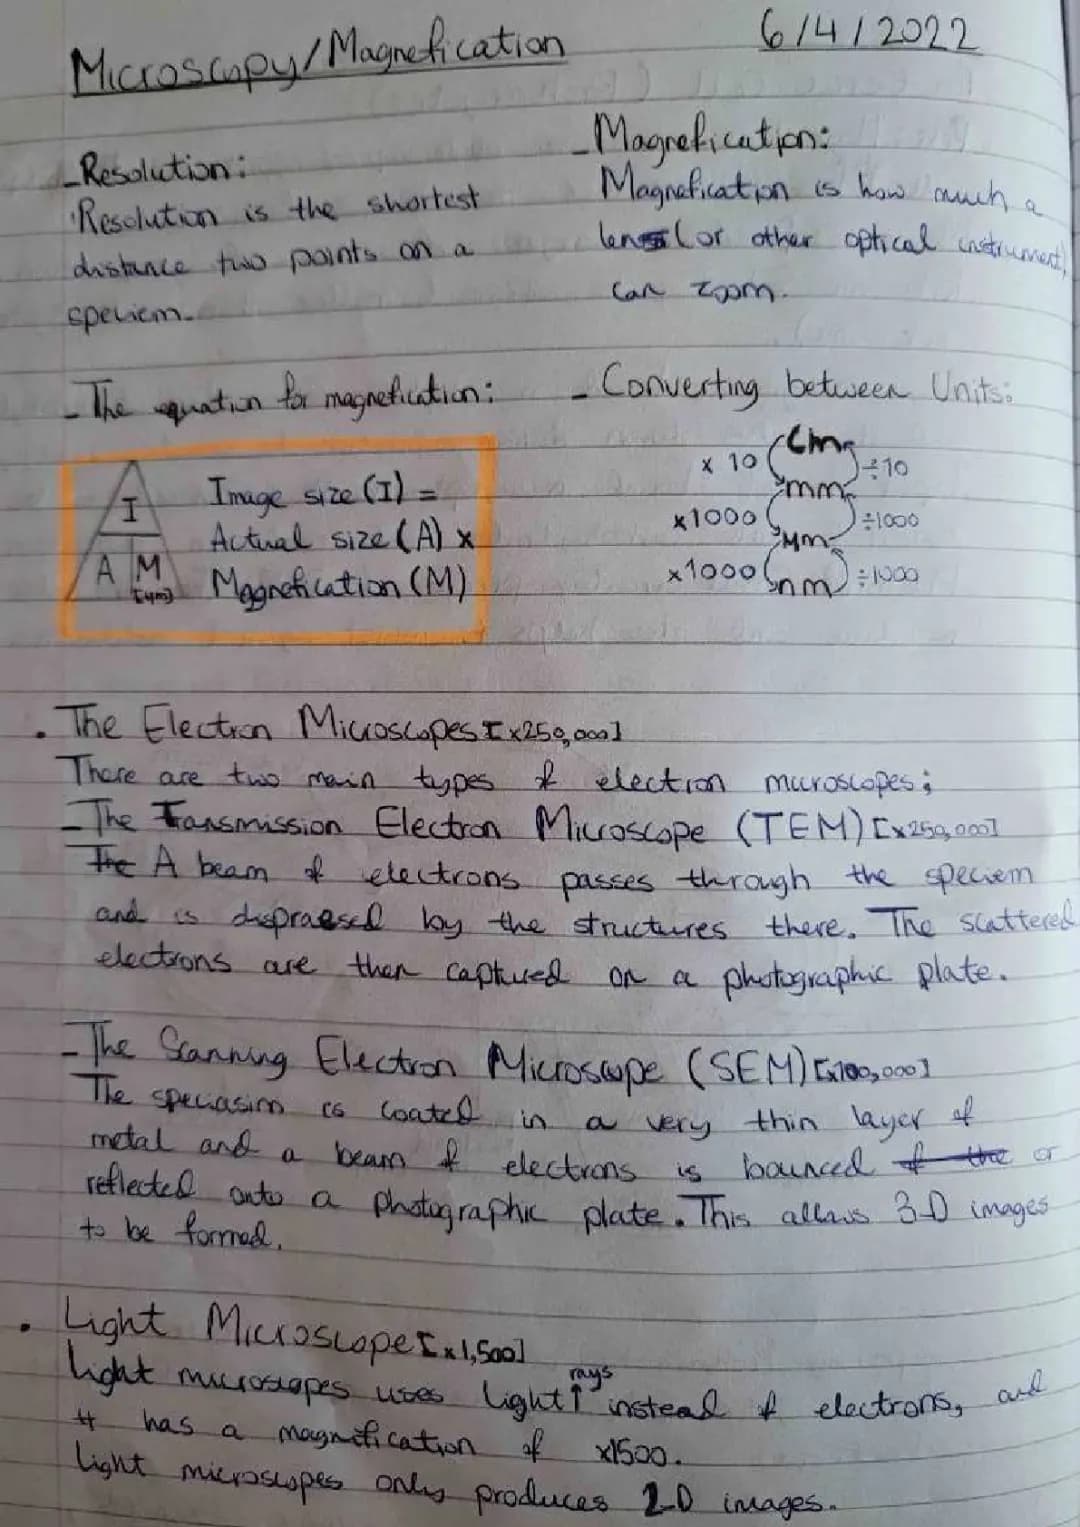 Microscopy/Magnefication
6/4/2022
-Resolution:
Resolution is the shortest
distance two points on a
speciem.
-Magnefication:
Magnefication is how much a
lens (or other optical instrument)
can zoom.
-The equation for magnefication:
I
A M
Image size (I) =
Actual size (A) x
Magnefication (M)
-Converting between Units:
cm
x 10 ÷10
mm
x1000 ÷1000
μm
x1000 ÷1000
nm
• The Electron Microscopes [x250,000]
There are two main types of electron microscopes;
-The Transmission Electron Microscope (TEM) [x250,000]
The A beam of electrons passes through the speciem
and is dispraesed by the structures there. The scattered
electrons are then captured on a photographic plate.
-The Scanning Electron Microscope (SEM) [x100,000]
The speciasim is coated in a very thin layer of
metal and a beam of electrons is bounced of the or
reflected onto a photographic plate. This allows 3-D images
to be formed.
• Light Microscope [x1,500]
Light microscopes uses light rays instead of electrons, and
it has a magnification of x1500.
Light microscopes only produces 2-D images.